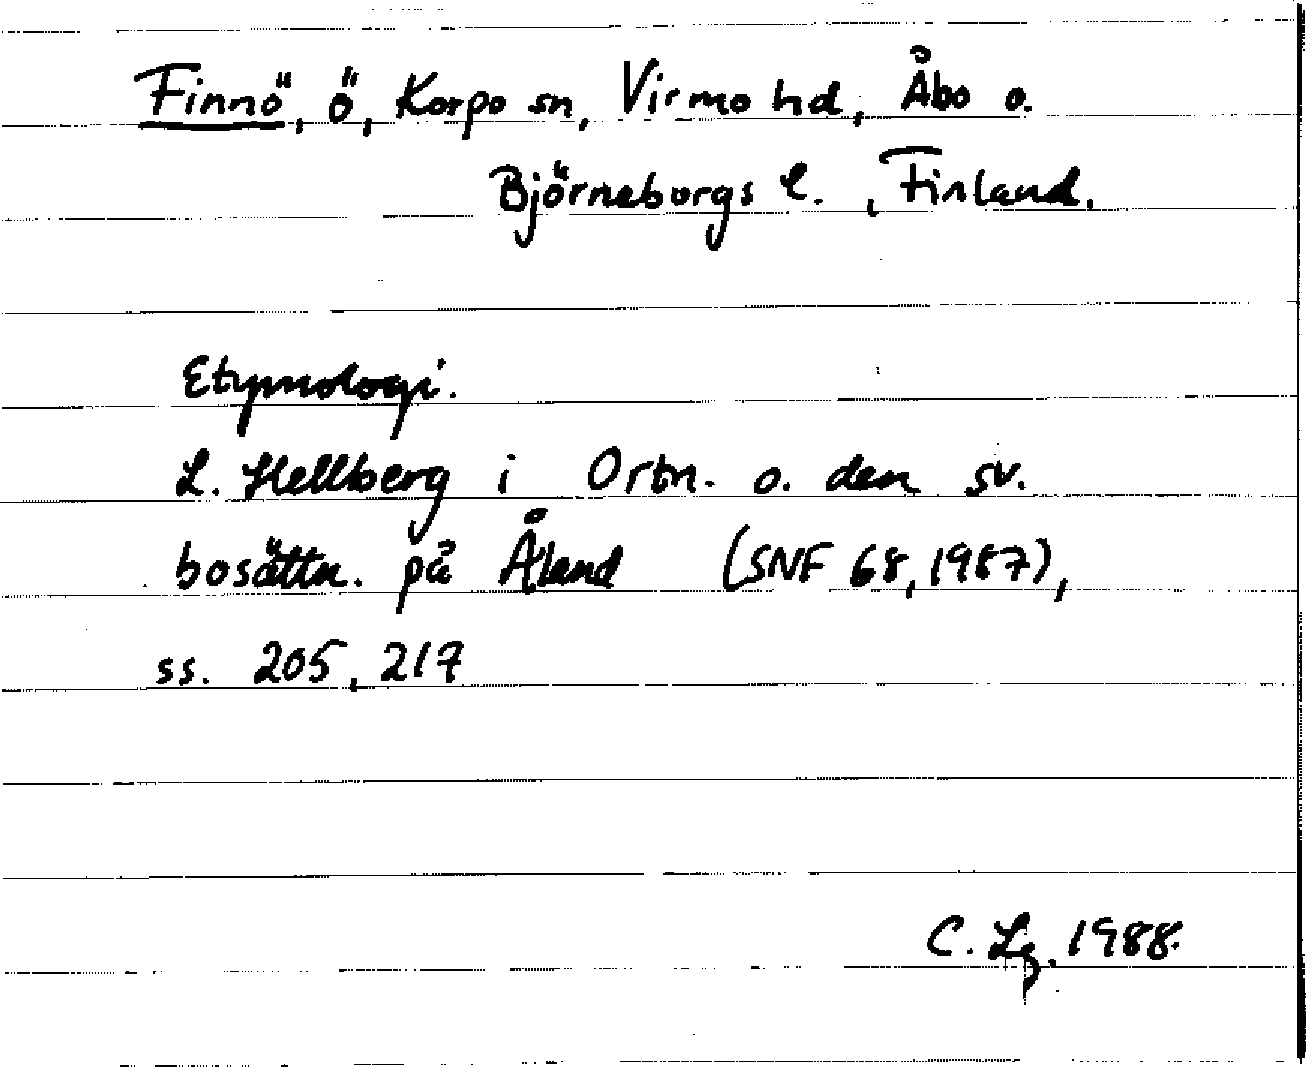 Finnö, ö, Korpo sn, Virmo hd, Åbo o.
Björneborgs l., Finland.
Etymologi.
L. Hellberg i Ortn. o. den sv.
bosättn. på Åland (SNF 68, 1987),
ss. 205, 217
C. Lg. 1988.